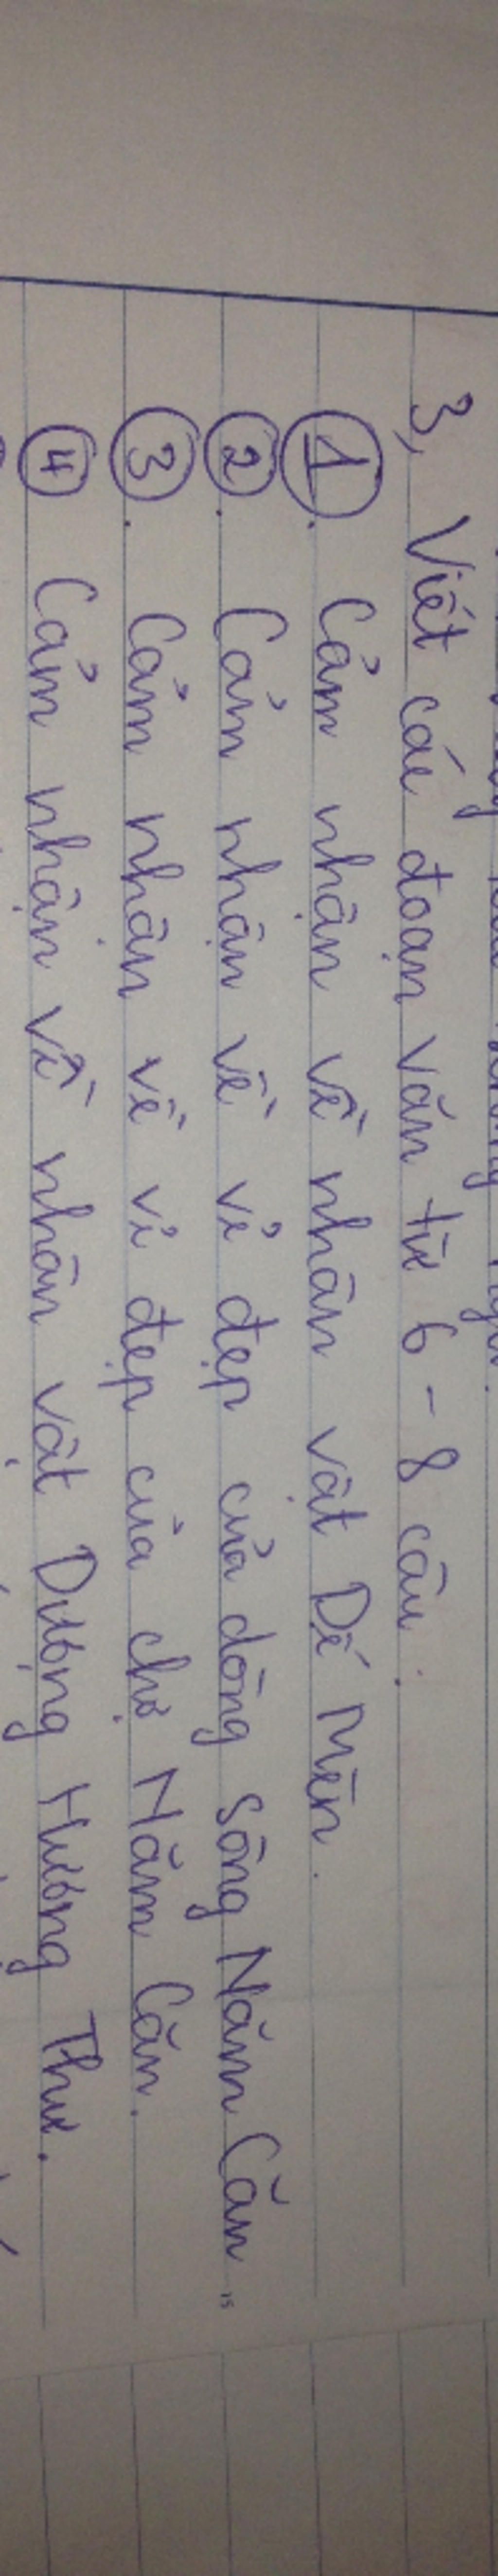 3, Viết các đoạn văn từ 6 - 8 câu.
1. Cảm nhận về nhân vật Dế Mèn.
2. Cảm nhận về vẻ đẹp của dòng sông Năm Căn.
3. Cảm nhận về vẻ đẹp của chợ Năm Căn.
4 Cảm nhận về nhân vật Dượng Hương Thư.